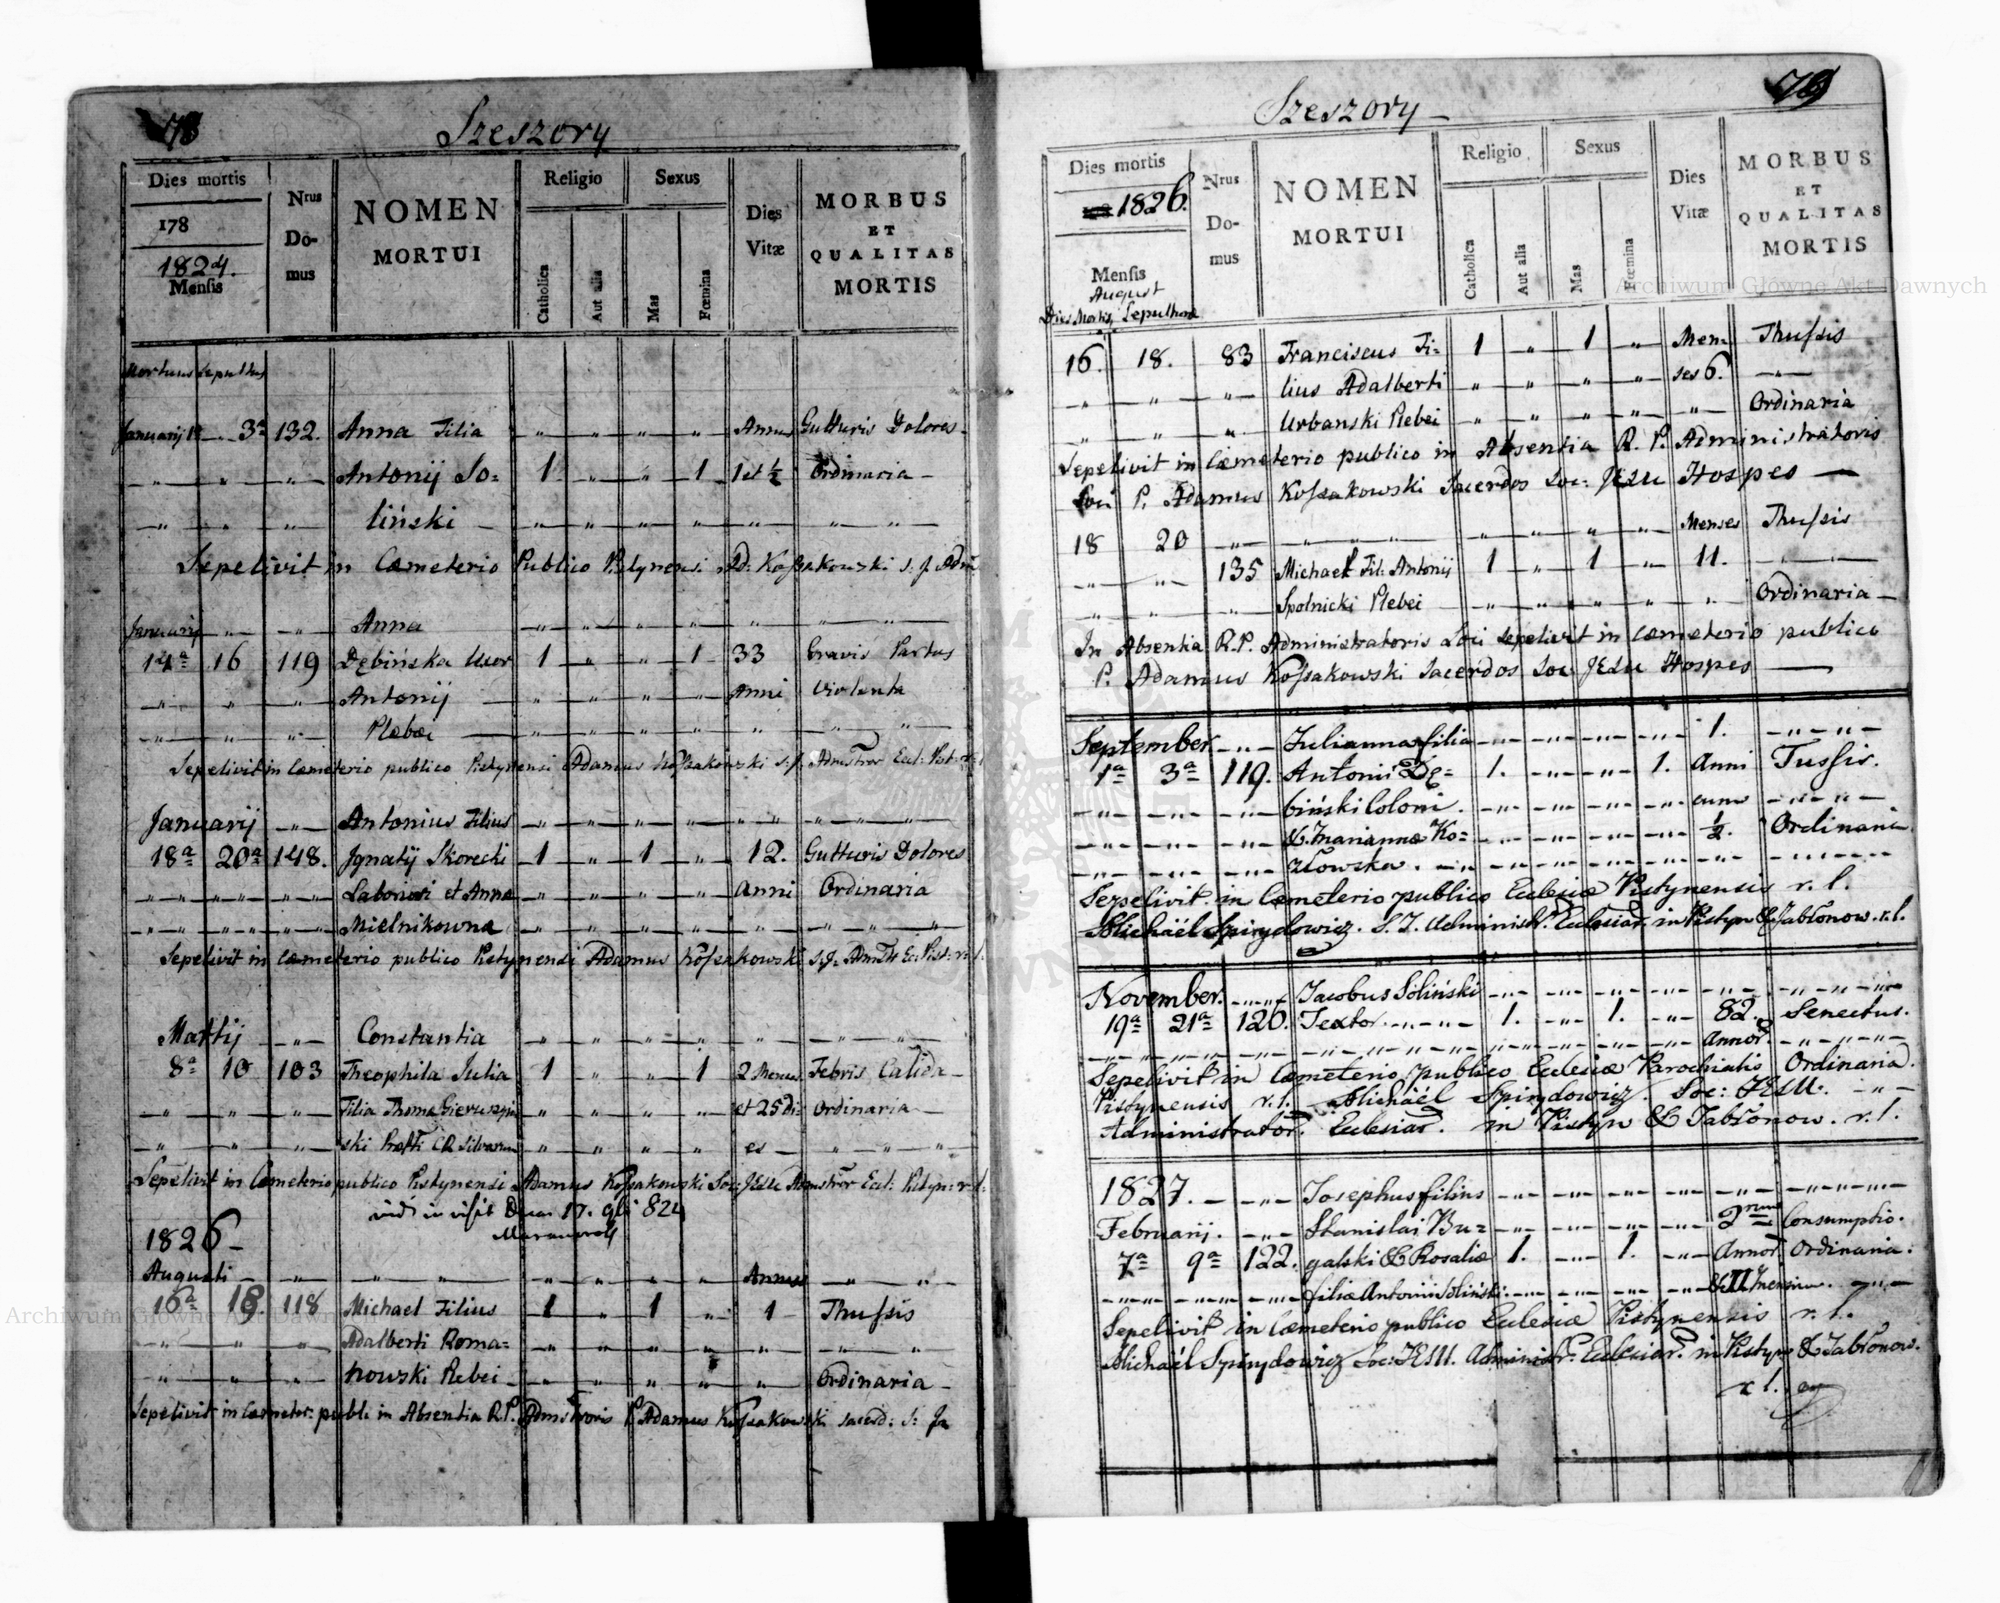 78
Szeszory
Dies mortis
178
1824.
Mensis
Nrus
Do-
mus
NOMEN
MORTUI
Religio
Catholica
Aut alia
Sexus
Mas
Fœmina
Dies
Vitæ
MORBUS
ET
QUALITAS
MORTIS
Mortuus Sepultus
Januarij 1ª 3ª 132. Anna Filia " " " " Annus Gutturis Dolores
" " " Antonij So- 1 " " 1 1 et ½ Ordinaria
" " " liński " " " " " " "
Sepelivit in Cæmeterio Publico Pistynensi Ad: Kossakowski S. J. Adm
Januarij " " Anna " " " " " " "
14ª 16 119 Dębińska Uxor 1 " " 1 33 Gravis Partus
" " " Antonij " " " " Anni Violenta
" " " Plebæi " " " " " " "
Sepelivit in Cæmeterio publico Pistynensi Adamus Kossakowski S: J. Admstror Eccl: Pist: r. l.
Januarij " Antonius Filius " " " " " " " "
18ª 20ª 148. Ignatij Skorecki 1 " 1 " 12. Gutturis Dolores
" " " Laboriosi et Anna " " " " Anni Ordinaria
" " " Mielnikowna " " " " " " "
Sepelivit in Cæmeterio publico Pistynensi Adamus Kossakowski S. J. Ec: Pist: r: l.
Martij " Constantia " " " " " " " "
8ª 10 103 Theophila Julia 1 " " 1 2 Menses Febris Calida
" " " Filia Thoma " " " " et 25 di- Ordinaria
" " " ski CR Silvarum " " " " es " "
Sepelivit in Cæmeterio publico Pistynensi Adamus Kossakowski Soc: JESU Admstror Eccl: Pistyn: r. l.
vidi in visit 17. 9bi 824
1826
Augusti " " " " " " " " Annus " "
16ª 18. 118 Michael Filius 1 " 1 " 1 Thussis
" " " Adalberti Roma= " " " " " " "
" " " nowski Plebei " " " " " Ordinaria
Sepelivit in Cæmeter: publi: in Absentia R. P. Admstroris P. Adamus Kossakowski Sacerd: S: Je
79
Szeszory
Dies mortis
1826.
Mensis
August
Dies Mortis, Sepulturæ
Nrus
Do-
mus
NOMEN
MORTUI
Religio
Catholica
Aut alia
Sexus
Mas
Fœmina
Dies
Vitæ
MORBUS
ET
QUALITAS
MORTIS
16. 18. 83 Franciscus Fi= 1 " 1 " Men= Thussis
" " " lius Adalberti " " " " ses 6. "
" " " Urbanski Plebei " " " " " Ordinaria
Sepelivit in Cæmeterio publico in Absentia R. P. Administratoris
Loci P. Adamus Kossakowski Sacerdos Soc: JESU Hospes
18 20 " " " " " " " " Menses Thussis
" " 135 Michael Fil: Antonij 1 " 1 " 11. " "
" " " Spolnicki Plebei " " " " " Ordinaria
In Absentia R. P. Administratoris Loci sepelivit in Cæmeterio publico
P. Adamus Kossakowski Sacerdos Soc JESU Hospes
September. " Julianna filia " " " " 1. " "
1ª 3ª 119. Antonii Dę= 1. " " 1. Anni Tussis.
" " " biński Coloni " " " " cum " "
" " " & Mariannæ Ko= " " " " ½. Ordinaria
" " " złowska. " " " " " "
Sepelivit in Cæmeterio publico Ecclesiæ Pistynensis r. l.
Michaël Spirydowicz. S. J. Administr. Ecclesiar. in Pistyn & Jabłonow. r. l.
November. " Jacobus Soliński " " " " " "
19ª 21ª 120. Textor. " 1. " 1. " 82. Senectus.
" " " " " " " " " Annor. " "
Sepelivit in Cæmeterio publico Ecclesiæ Parochialis Ordinaria.
Pistynensis r. l. Michaël Spirydowicz. Soc: JESU. "
Administrator. Ecclesiar. in Pistyn & Jabłonow. r. l.
1827. " Josephus filius " " " " " "
Februarij. " Stanislai Bu= " " " " 2rum Consumptio.
7ª 9ª 122. galski & Rosaliæ 1. " 1. " Annor. Ordinaria.
" " " filiæ Antonii Soliński. " " " " & 11 Mensium. "
Sepelivit in Cæmeterio publico Ecclesiæ Pistynensis r. l.
Michaël Spirydowicz Soc: JESU. Administr. Ecclesiar. in Pistyn & Jabłonow.
r l.
Archiwum Główne Akt Dawnych
Archiwum Główne Akt Dawnych